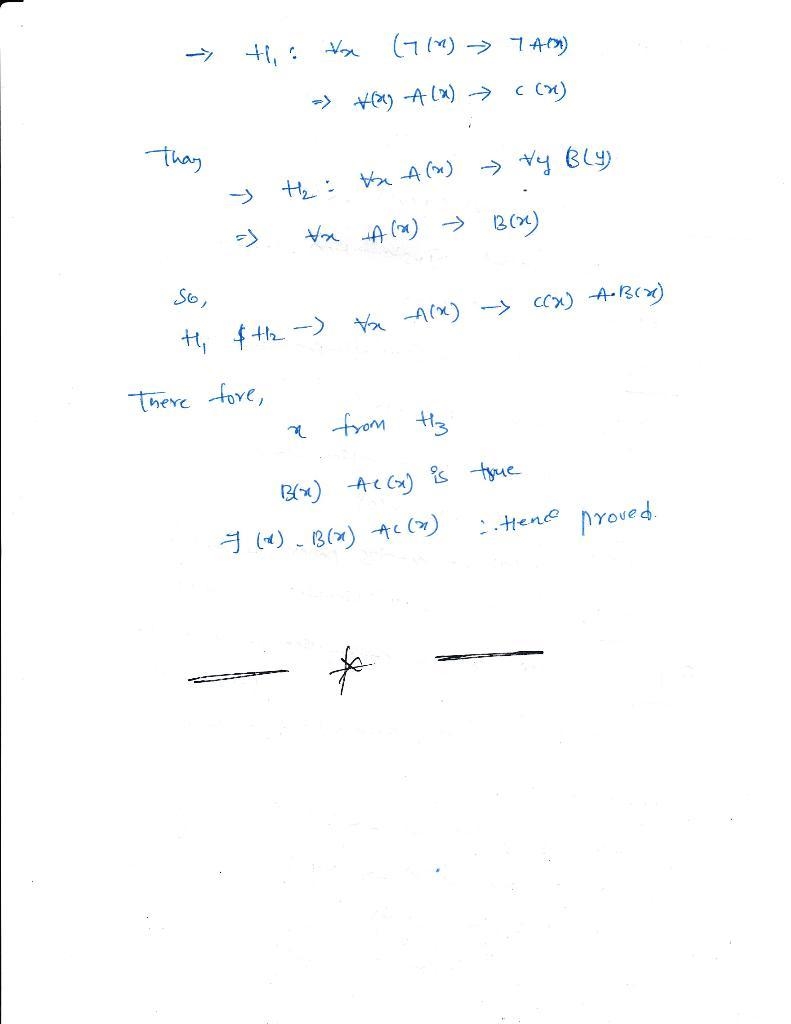 → H₁ : ∀x (¬(x) → ¬A(x)
⇒ ∀(x) A(x) → C(x)
Thay
→ H₂ : ∀x A(x) → ∀y B(y)
⇒ ∀x A(x) → B(x)
So,
H₁ & H₂ → ∀x A(x) → C(x) ∧·B(x)
There fore,
x from H₃
B(x) ∧C(x) is true
∃ (x) - B(x) ∧C(x) ∴ Hence proved.